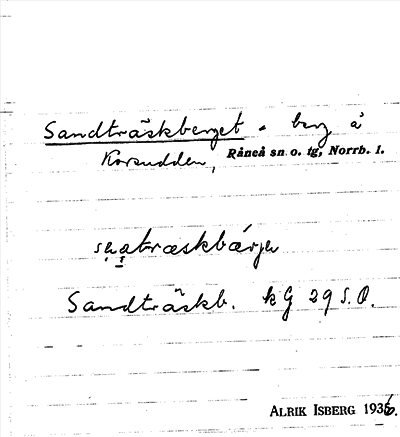 Sandträskberget - berg å
Korsudden, Råneå sn o. tg, Norrb. l.
sạnatræskbærje
Sandträskb. kG 29 S.O.
ALRIK ISBERG 1936.